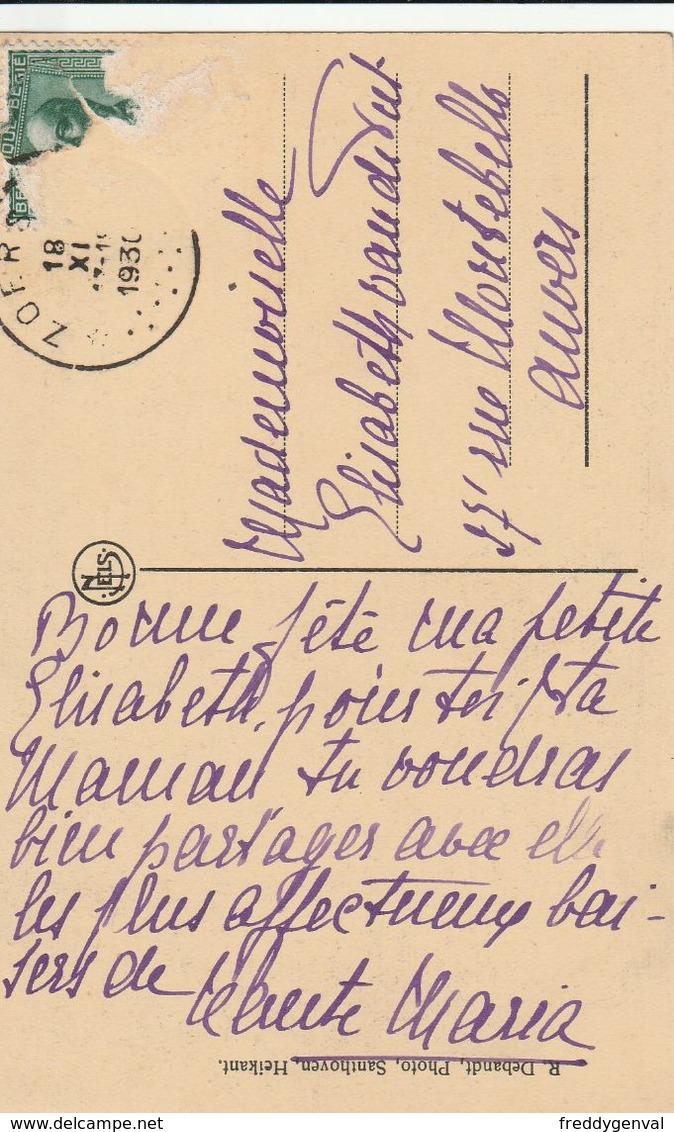 BELGIQUE-BELGIË
ZOER
18
XI
1930
Mademoiselle
Elisabeth
27 rue Montebello
Anvers
NELS
Bonne fête ma petite
Elisabeth, pour toi et ta
Maman tu voudras
bien partager avec elle
les plus affectueux bai-
sers de Tante Maria
R. Debandt, Photo, Santhoven, Heikant.
delcampe.net
freddygenval